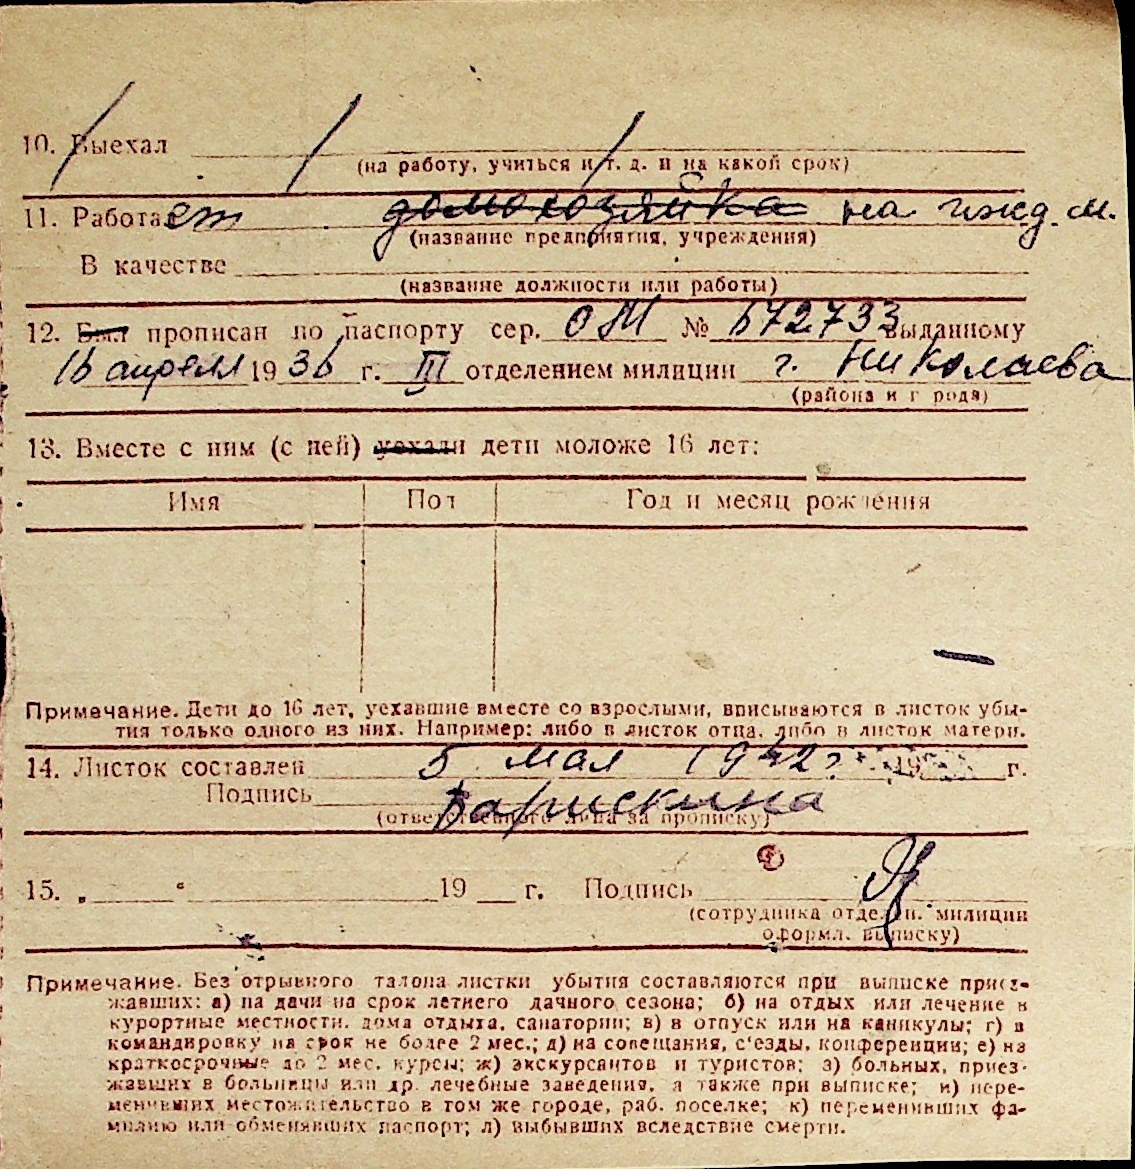 10. Выехал
(на работу, учиться и т. д. и на какой срок)
11. Работает домохозяйка на ижд. м.
(название предприятия, учреждения)
В качестве
(название должности или работы)
12. Был прописан по паспорту сер. ОМ № 672733 выданному
16 апреля 1936 г. III отделением милиции г. Николаева
(района и г рода)
13. Вместе с ним (с ней) уехали дети моложе 16 лет:
Имя Пол Год и месяц рождения
Примечание. Дети до 16 лет, уехавшие вместе со взрослыми, вписываются в листок убы-
тия только одного из них. Например: либо в листок отца, либо в листок матери.
14. Листок составлен 5 мая 1942 г. 19 г.
Подпись
(ответственного лица за прописку)
15. „ “ 19 г. Подпись
(сотрудника отделен. милиции
оформл. выписку)
Примечание. Без отрывного талона листки убытия составляются при выписке приез-
жавших: а) на дачи на срок летнего дачного сезона; б) на отдых или лечение в
курортные местности, дома отдыха, санатории; в) в отпуск или на каникулы; г) в
командировку на срок не более 2 мес.; д) на совещания, с'езды, конференции; е) на
краткосрочные до 2 мес. курсы; ж) экскурсантов и туристов; з) больных, приез-
жавших в больницы или др. лечебные заведения, а также при выписке; и) пере-
менивших местожительство в том же городе, раб. поселке; к) переменивших фа-
милию или обменявших паспорт; л) выбывших вследствие смерти.